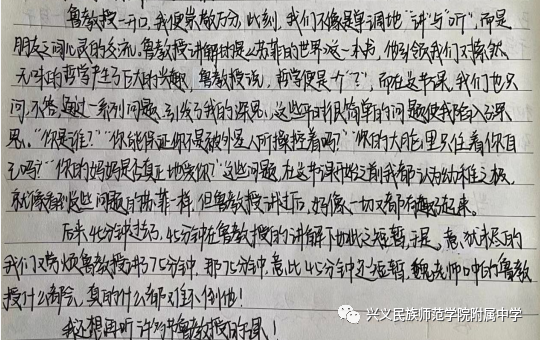 鲁教授一开口，我便崇敬万分，此刻，我们不像是单调地"讲"与"听"，而是
朋友之间心灵的交流。鲁教授讲解时提《苏菲的世界》这一本书，他引领我们对索然
无味的哲学产生了巨大的兴趣，鲁教授说，哲学便是个"？"，而在这节课，我们也只
问，不答，通过一系列问题，引发了我的深思，这些平时很简单的问题使我陷入了深
思。"你是谁？""你能保证你不是被外星人所操控着吗？""你的大脑里只住着你自
己吗？""你的妈妈是否真正地爱你？"这些问题，在这节课开始之前我都认为幼稚之极，
就像看到这些问题的苏菲一样，但鲁教授讲过后，好像一切又都有趣起来。
后来，45分钟过了，45分钟在鲁教授的讲解下如此之短暂，于是，意犹未尽的
我们又劳烦鲁教授讲了75分钟，那75分钟，竟比45分钟还短暂，魏老师口中的鲁教
授什么都会，真的什么都难不倒他！
我还想再听许许多多鲁教授的课！
兴义民族师范学院附属中学